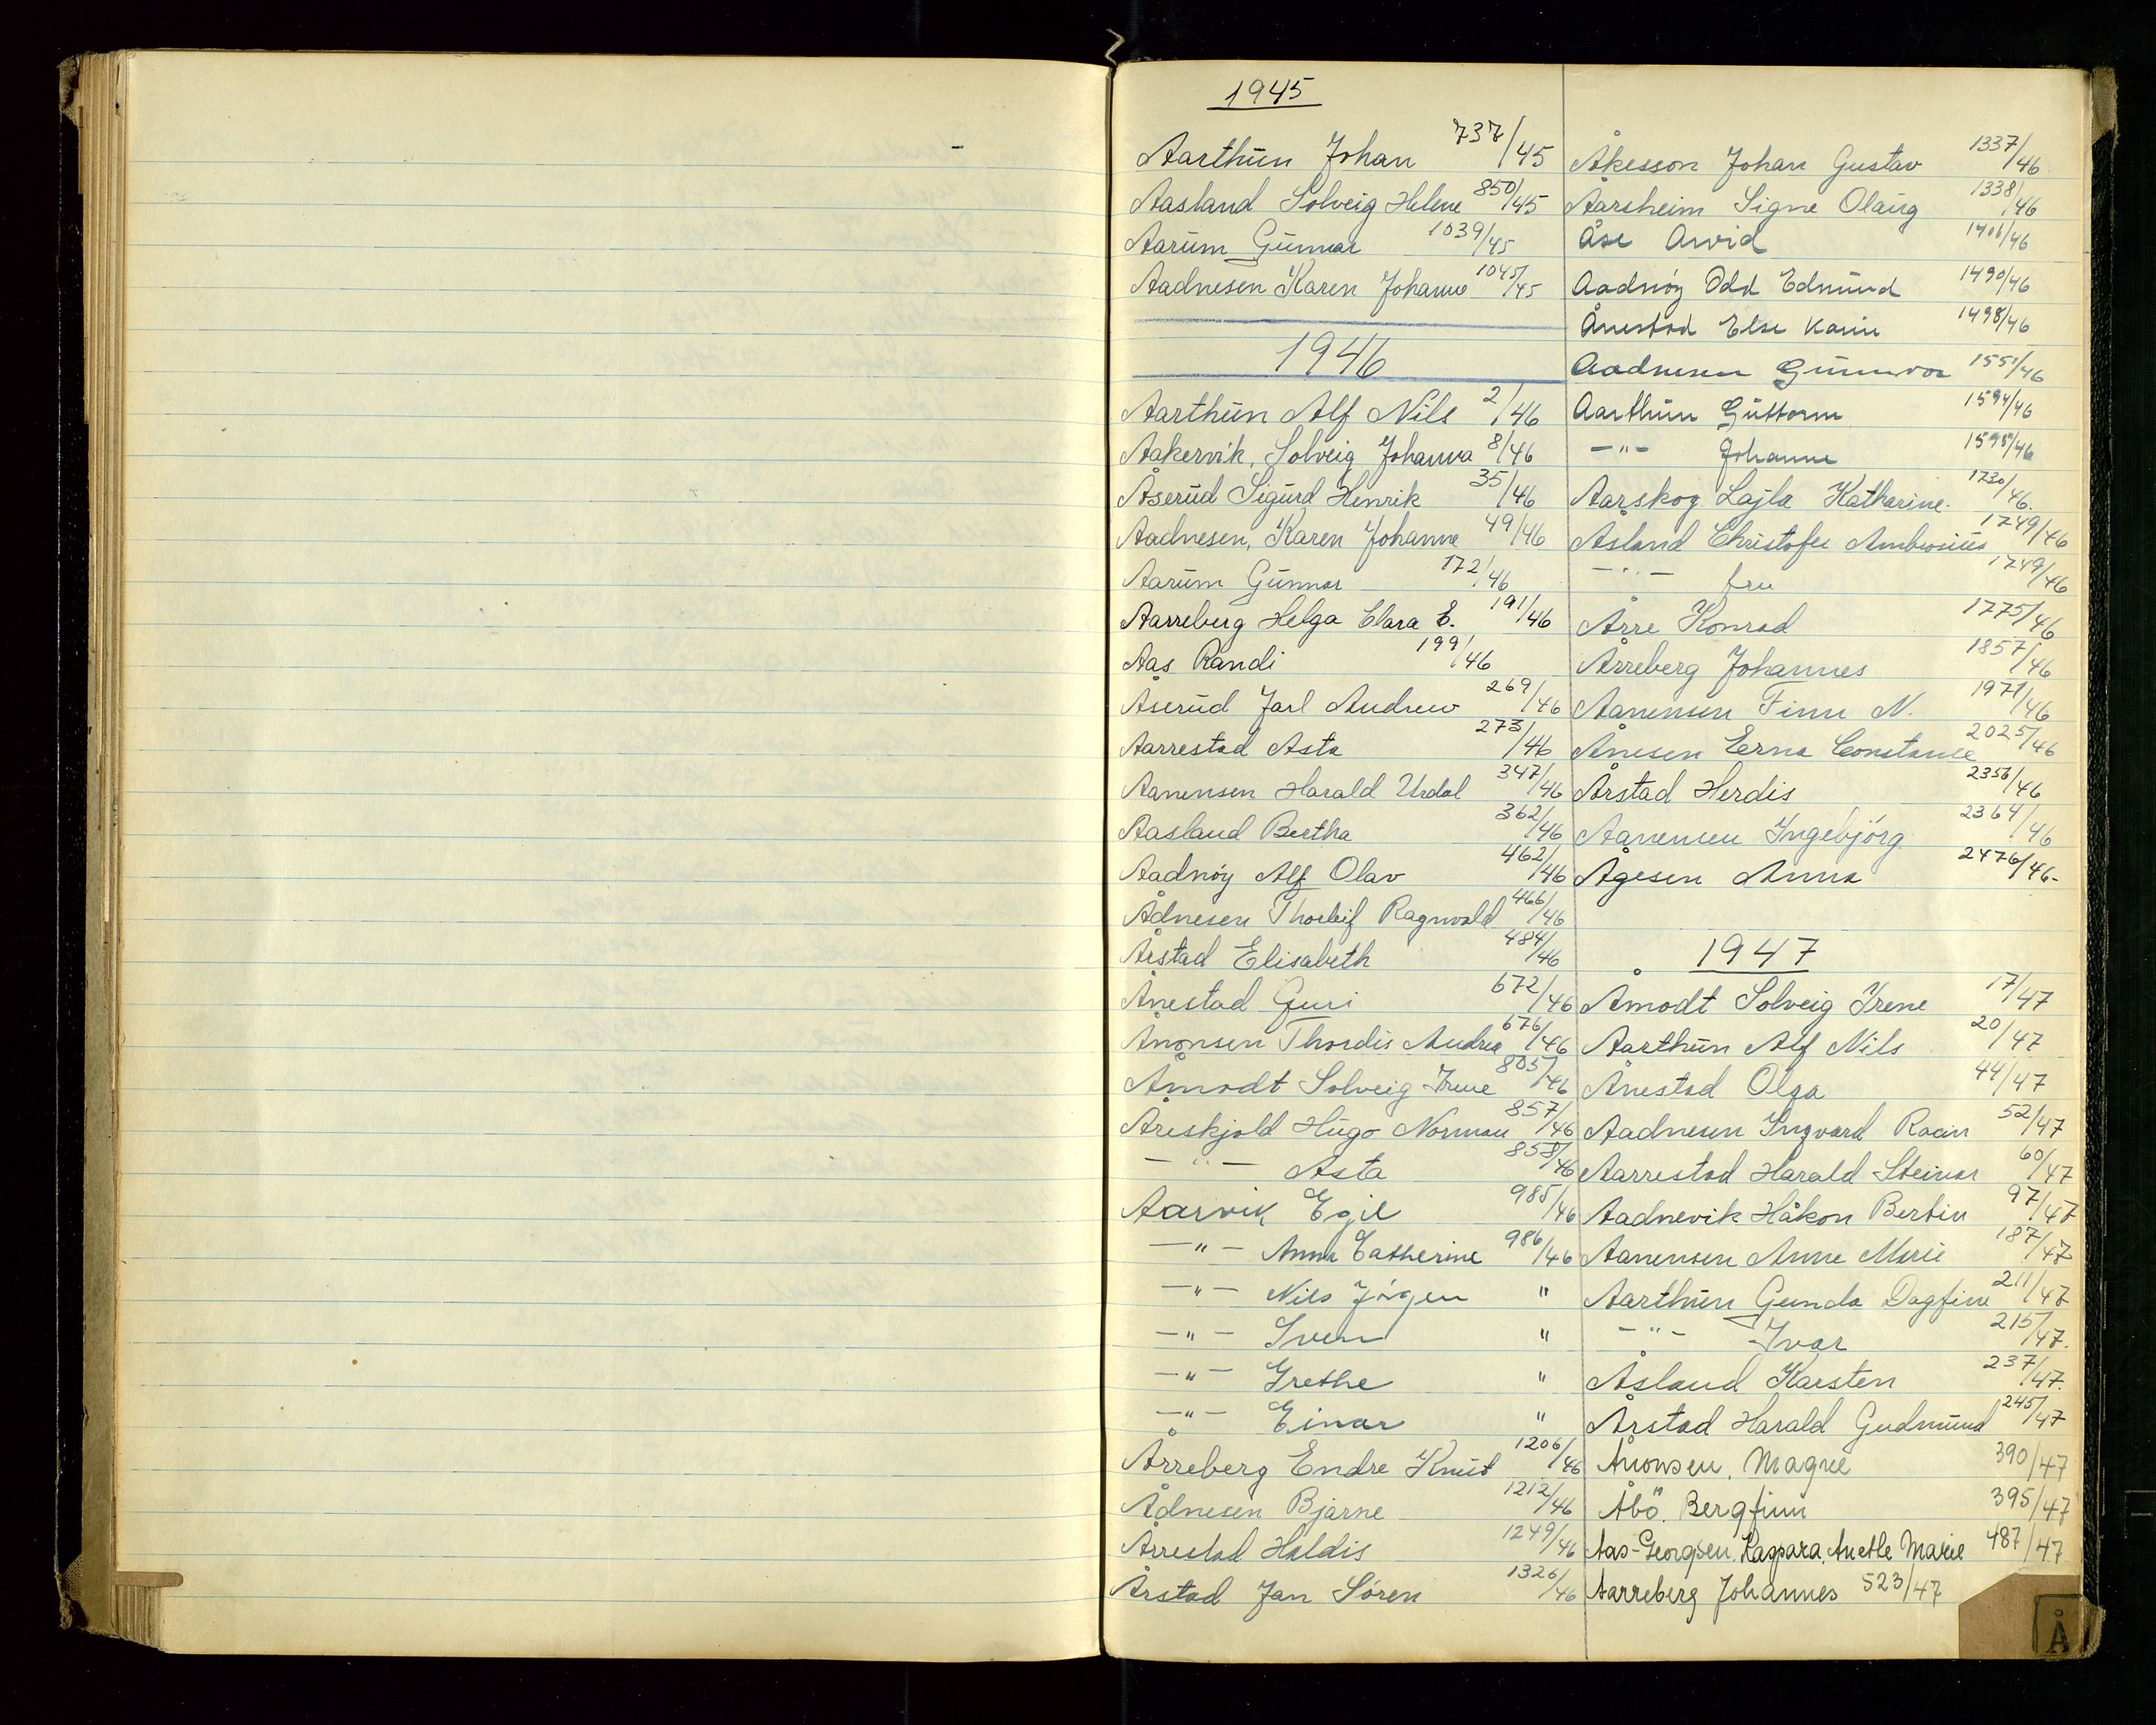 1945
Aarthun Johan 737/45
Aasland Solveig Helene 850/45
Aarum Gunnar 1039/45
Aadnesen Karen Johanne 1045/45
1946
Aarthun Alf Nils 2/46
Aakervik, Solveig Johanna 8/46
Åserud Sigurd Henrik 35/46
Aadnesen, Karen Johanne 49/46
Aarum Gunnar 172/46
Aarreberg Helga Clara E. 191/46
Aas Randi 199/46
Åserud Jarl Andrew 269/46
Aarrestad Asta 273/46
Aanensen Harald Urdal 347/46
Aasland Bertha 362/46
Aadnöy Alf Olav 462/46
Ådnesen Thorleif Ragnvald 466/46
Årstad Elisabeth 484/46
Ånestad Guri 672/46
Ånonsen Thordis Andrea 676/46
Åmodt Solveig Irene 805/46
Åreskjold Hugo Norman 857/46
-"- Asta 858/46
Aarvik Egil 985/46
-"- Anna Catherine 986/46
-"- Nils Jörgen "
-"- Sven "
-"- Grethe "
-"- Einar "
Årreberg Endre Knut 1206/46
Ådnesen Bjarne 1212/46
Årrestad Haldis 1249/46
Årstad Jan Sören 1326/46
Åkesson Johan Gustav 1337/46
Aarsheim Signe Olaug 1338/46
Åse Arvid 1406/46
Aadnöy Odd Edmund 1490/46
Ånestad Else Karin 1498/46
Aadnesen Gunnvor 1551/46
Aarthun Guttorm 1594/46
-"- Johanne 1595/46
Aarskog Lajla Katharine. 1730/46.
Åsland Christofer Ambrosius 1749/46
-"- fru 1749/46
Årre Konrad 1775/46
Årreberg Johannes 1857/46
Aanensen Finn N. 1971/46
Ånesen Erna Constance 2025/46
Årstad Herdis 2356/46
Aanensen Ingebjörg 2364/46
Ågesen Anna 2476/46-
1947
Åmodt Solveig Irene 17/47
Aarthun Alf Nils 20/47
Ånestad Olga 44/47
Aadnesen Ingvard 52/47
Aarrestad Harald Steinar 60/47
Aadnevik Håkon Bertin 97/47
Aanensen Anne Marie 187/47
Aarthun Gunda Dagfine 211/47
-"- Ivar 215/47.
Åsland Karsten 237/47.
Årstad Harald Gudmund 245/47
Ånonsen, Magne 390/47
Åbö. Bergfinn 395/47
Aas-Georgsen, Kaspara, Anethe Marie 487/47
Aarreberg Johannes 523/47
Å